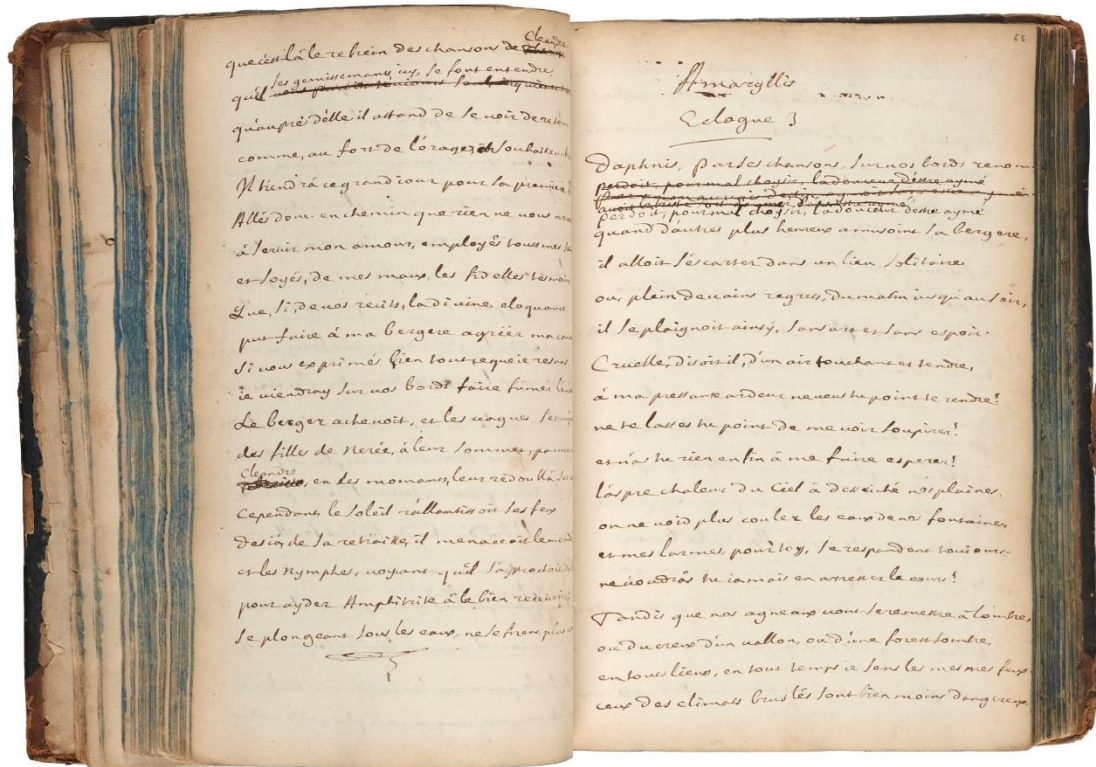 que c'est là le refrein des chansons de
Cleandre
ses gemissemants icy, se font entendre
qu'il
qu'aupré d'elle il attand de se voir de reto
comme, au fort de l'orage, on souhaite
Il tiendrà ce grand iour pour la premier
Allés donc en chemin que rien ne vous
à servir mon amour, employés tous mes
et soyés, de mes maux, les fidelles tesmoin
Que, si, de vos récits, la divine eloquance
put faire à ma bergere agréer ma
si vous exprimés bien tout ce que ie
ie viendray sur vos bords faire fumer
Le berger achevoit, et les vagues
des filles de Nerée, à leur sommet,
Cleandre
en ces momans, leur redoubla
Cependant le soleil rallantissoit ses feux
Desià, de sa retraitte, il menacoit le
et les Nymphes, voyant qu'il
pour ayder Amphitrite à le bien recevoir
se plongeant sous les eaux, ne se firent plus
65
Amaryllis
Eclogue 3
Daphnis, par ses chansons, sur nos bords renom
perdoit, pour mal choysir, la douceur d'estre aymé
perdoit, pour mal choysir, la douceur d'estre aymé
quand d'autres plus heureux amusoint sa bergere,
il alloit s'escarter dans un lieu solitaire
ou, plein de vains regrets, du matin iusqu'au soir,
il se plaignoit ainsy, sans art et sans espoir.
Cruelle, disoit-il, d'un air touchant et tendre,
à ma pressante ardeur ne veus tu point te rendre!
ne te lasses tu point de me voir soupirer!
et n'as tu rien enfin à me faire esperer!
l'aspre chaleur du Ciel à desseiché nos plaines,
on ne void plus couler les eaux de nos fontaines
et mes larmes, pour toy, se respandent tousiours.
ne voudràs tu iamais en arrester le cours!
Tandis que nos agneaux vont se remettre à l'ombre,
ou du creux d'un vallon, ou d'une forest sombre,
en tous lieux, en tout temps ie sens les mesmes feux
ceux des climats bruslés sont bien moins dangereux